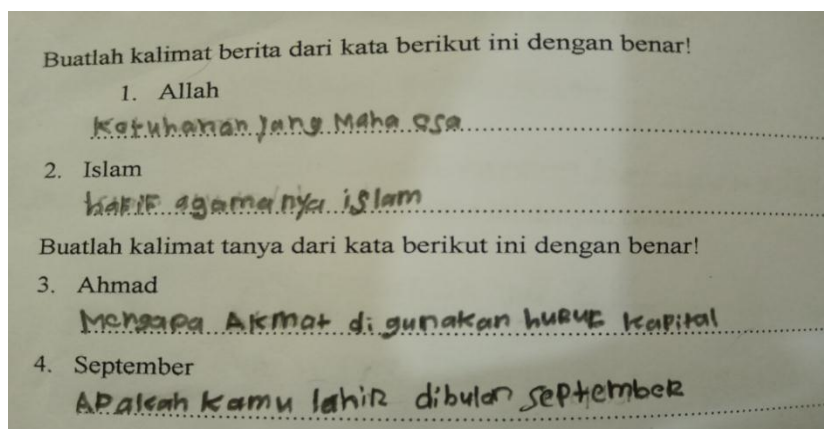 Buatlah kalimat berita dari kata berikut ini dengan benar!
1. Allah
Ketuhanan yang Maha esa
2. Islam
hafif agamanya islam
Buatlah kalimat tanya dari kata berikut ini dengan benar!
3. Ahmad
Mengapa Akmat di gunakan huruf kapital
4. September
APakah kamu lahir dibulan september